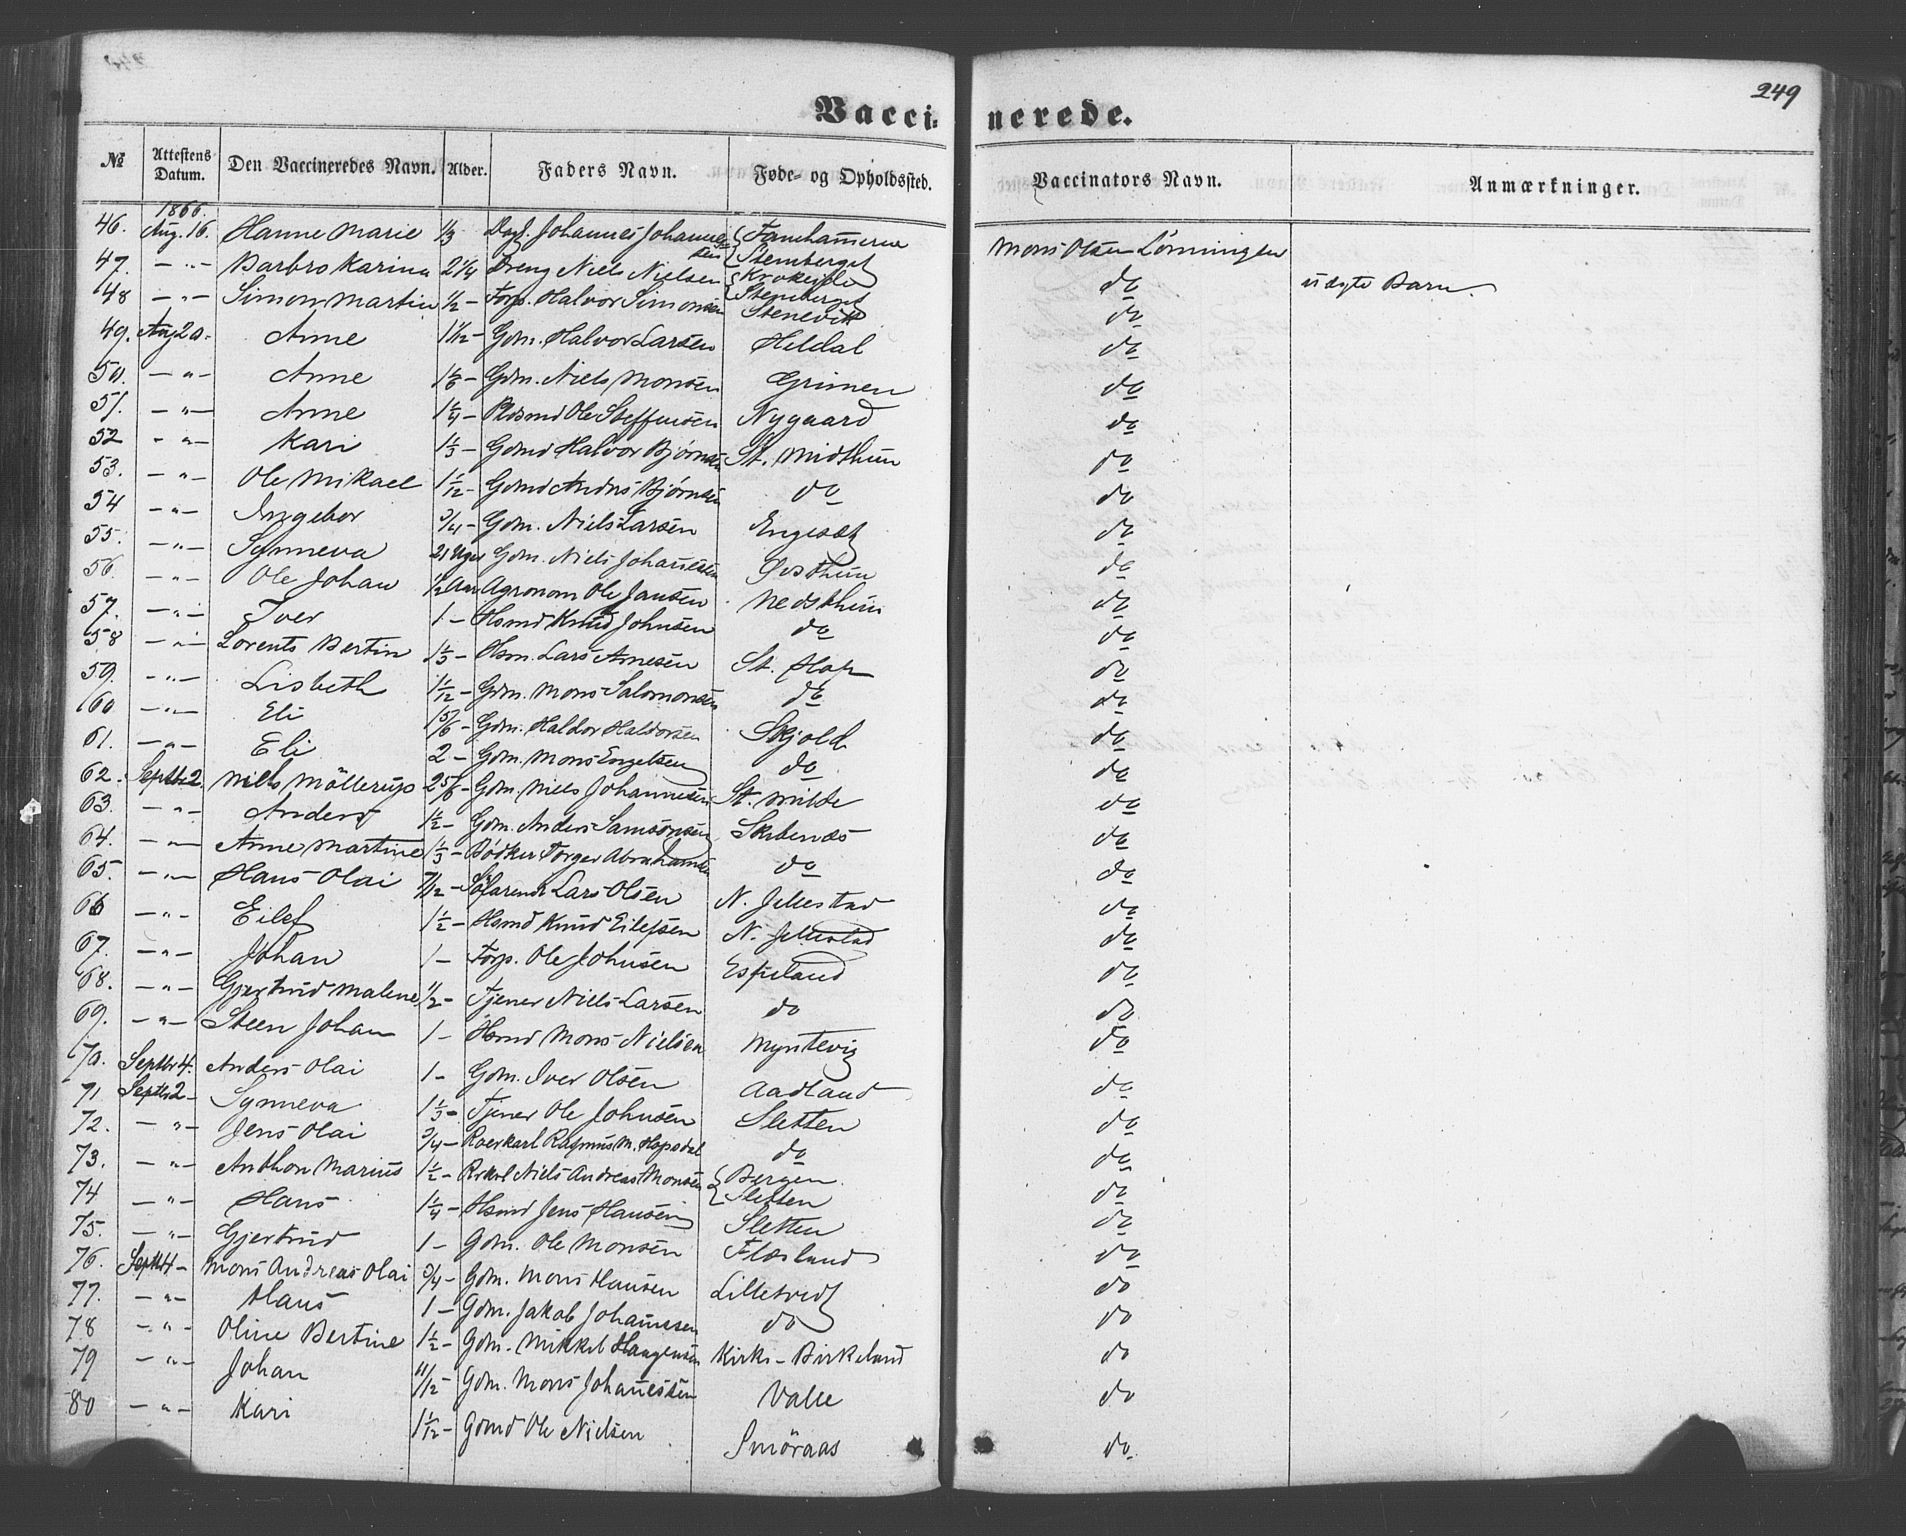 249
Vaccinerede.
№ Attestens Datum. Den Vaccineredes Navn. Alder. Faders Navn. Føde- og Opholdssted. Vaccinators Navn. Anmærkninger.
1866.
46. Aug. 16. Hanne Marie 1/3 Johannes Johannessen { Stemberget Mons Olsen Lønningen
47. — " — Barbro Karina 2 1/4 Dreng Niels Nielsen { Krokeide Stemberget do uægte Barn.
48 — " — Simon Martin 1/2 — Forp. Halvor Simonsen Stenevik do
49. Aug 20. Anne 1 1/12 — Gdm. Halvor Larsen Hildal do
50. — " — Anne 1 1/6 — Gdm. Niels Monsen Grimen do
51. — " — Anne 1 1/4 — Pldsmd Ole Steffensen Nygaard do
52 — " — Kari 1 1/3 — Gdmd Halvor Bjørnsen St. Midthun do
53. — " — Ole Mikael 1 1/12 — Gdmd Anders Bjørnsen do do
54 — " — Ingebor 3/4 — Gdm. Niels Larsen Engesæt do
55. — " — Synneva 21 Uger Gdm. Niels Johannessen Øvsthun do
56. — " — Ole Johan 1/2 Aar Agronom Ole Jansen Nedsthun do
57. — " — Iver 1 — Hsmd Knud Johnsen do do
58 — " — Lorents Bertin 1 1/3 — Hsm. Lars Arnesen St. Hop do
59. — " — Lisbeth 1 1/12 — Gdm. Mons Salomonsen do do
60 — " — Eli 1 5/6 — Gdm. Haldor Haldorsen Skjold do
61. — " — Eli 2 — Gdm. Mons Engelsen do do
62. Septbr 2. Niels Möllerup 2 5/6 — Gdm. Niels Johannesen St. Milde do
63. — " — Anders 1 1/2 — Gdm. Anders Samsonsen Skibenæs do
64. — " — Anne Martine 1 1/3 — Bødker Torger Abrahamsen do do
65. — " — Hans Olai 7/12 — Søfarende Lars Olsen N. Jellestad do
66 — " — Eilef 1 1/2 — Hsmd Knud Eilefsen N. Jellestad do
67. — " — Johan 1 — Forp. Ole Johnsen Espeland do
68. — " — Gjertrud Malene 1 1/2 — Tjener Niels Larsen do do
69. — " — Steen Johan 1 — Hsmd Mons Nielsen Myntevig do
70. Septbr 4. Anders Olai 1 — Gdm. Iver Olsen Aadland do
71 Septbr 2 — Synneva 1 1/3 — Tjener Ole Johnsen Sletten do
72. — " — Jens Olai 3/4 — Roerkarl Rasmus M. Hopsdal do do
73. — " — Anthon Marius 1 1/2 — Niels Andreas Monsen { Bergen Sletten do
74 — " — Hans 1 1/4 — Hsmd Jens Hansen Sletten do
75. — " — Gjertrud 1 — Gdm. Ole Monsen Flesland do
76. Septbr 4 — Mons Andreas Olai 3/4 — Gdm. Mons Hansen Lilletvedt do
77. — " — Hans 1 — Gdm. Jakob Johannessen do do
78 — " — Oline Bertine 1 1/2 — Gdm. Mikkel Haagensen Kirke-Birkeland do
79 — " — Johan 11/12 — Gdm. Mons Johannessen Valle do
80 — " — Kari 1 1/12 — Gdmd Ole Nielsen Smöraas do.